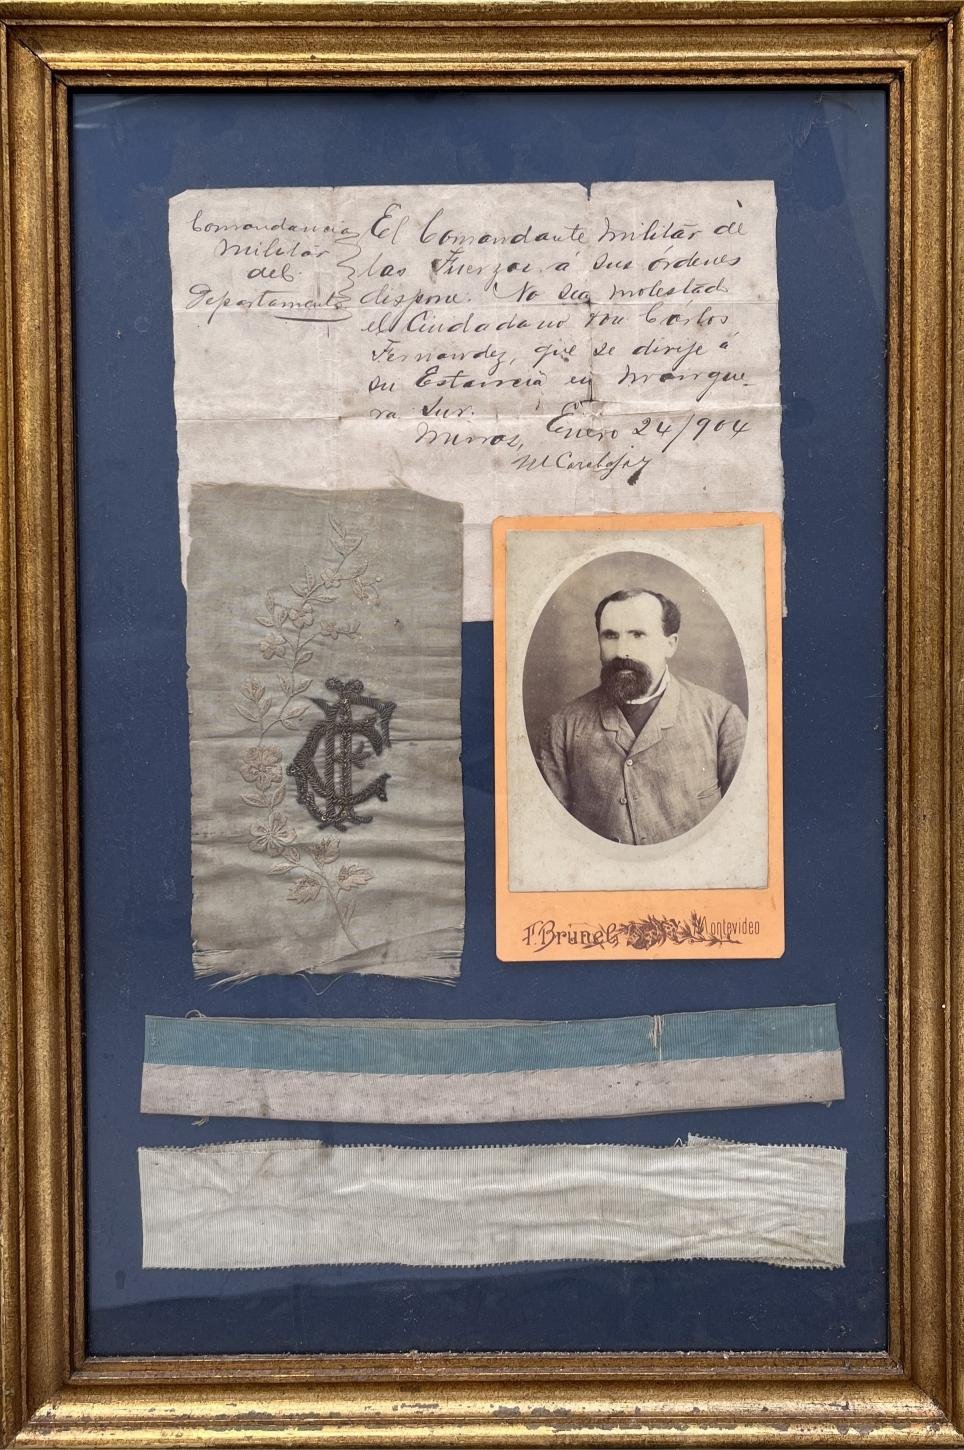 Comandancia
Militar
del
Departamento
El Comandante Militar de
las Fuerzas á sus ordenes
dispone: No sea molestado
el Ciudadano don Carlos
Fernandez, que se dirije á
su Estancia en Mangue-
ra Sur.
Minas, Enero 24/904
F. Brunel Montevideo